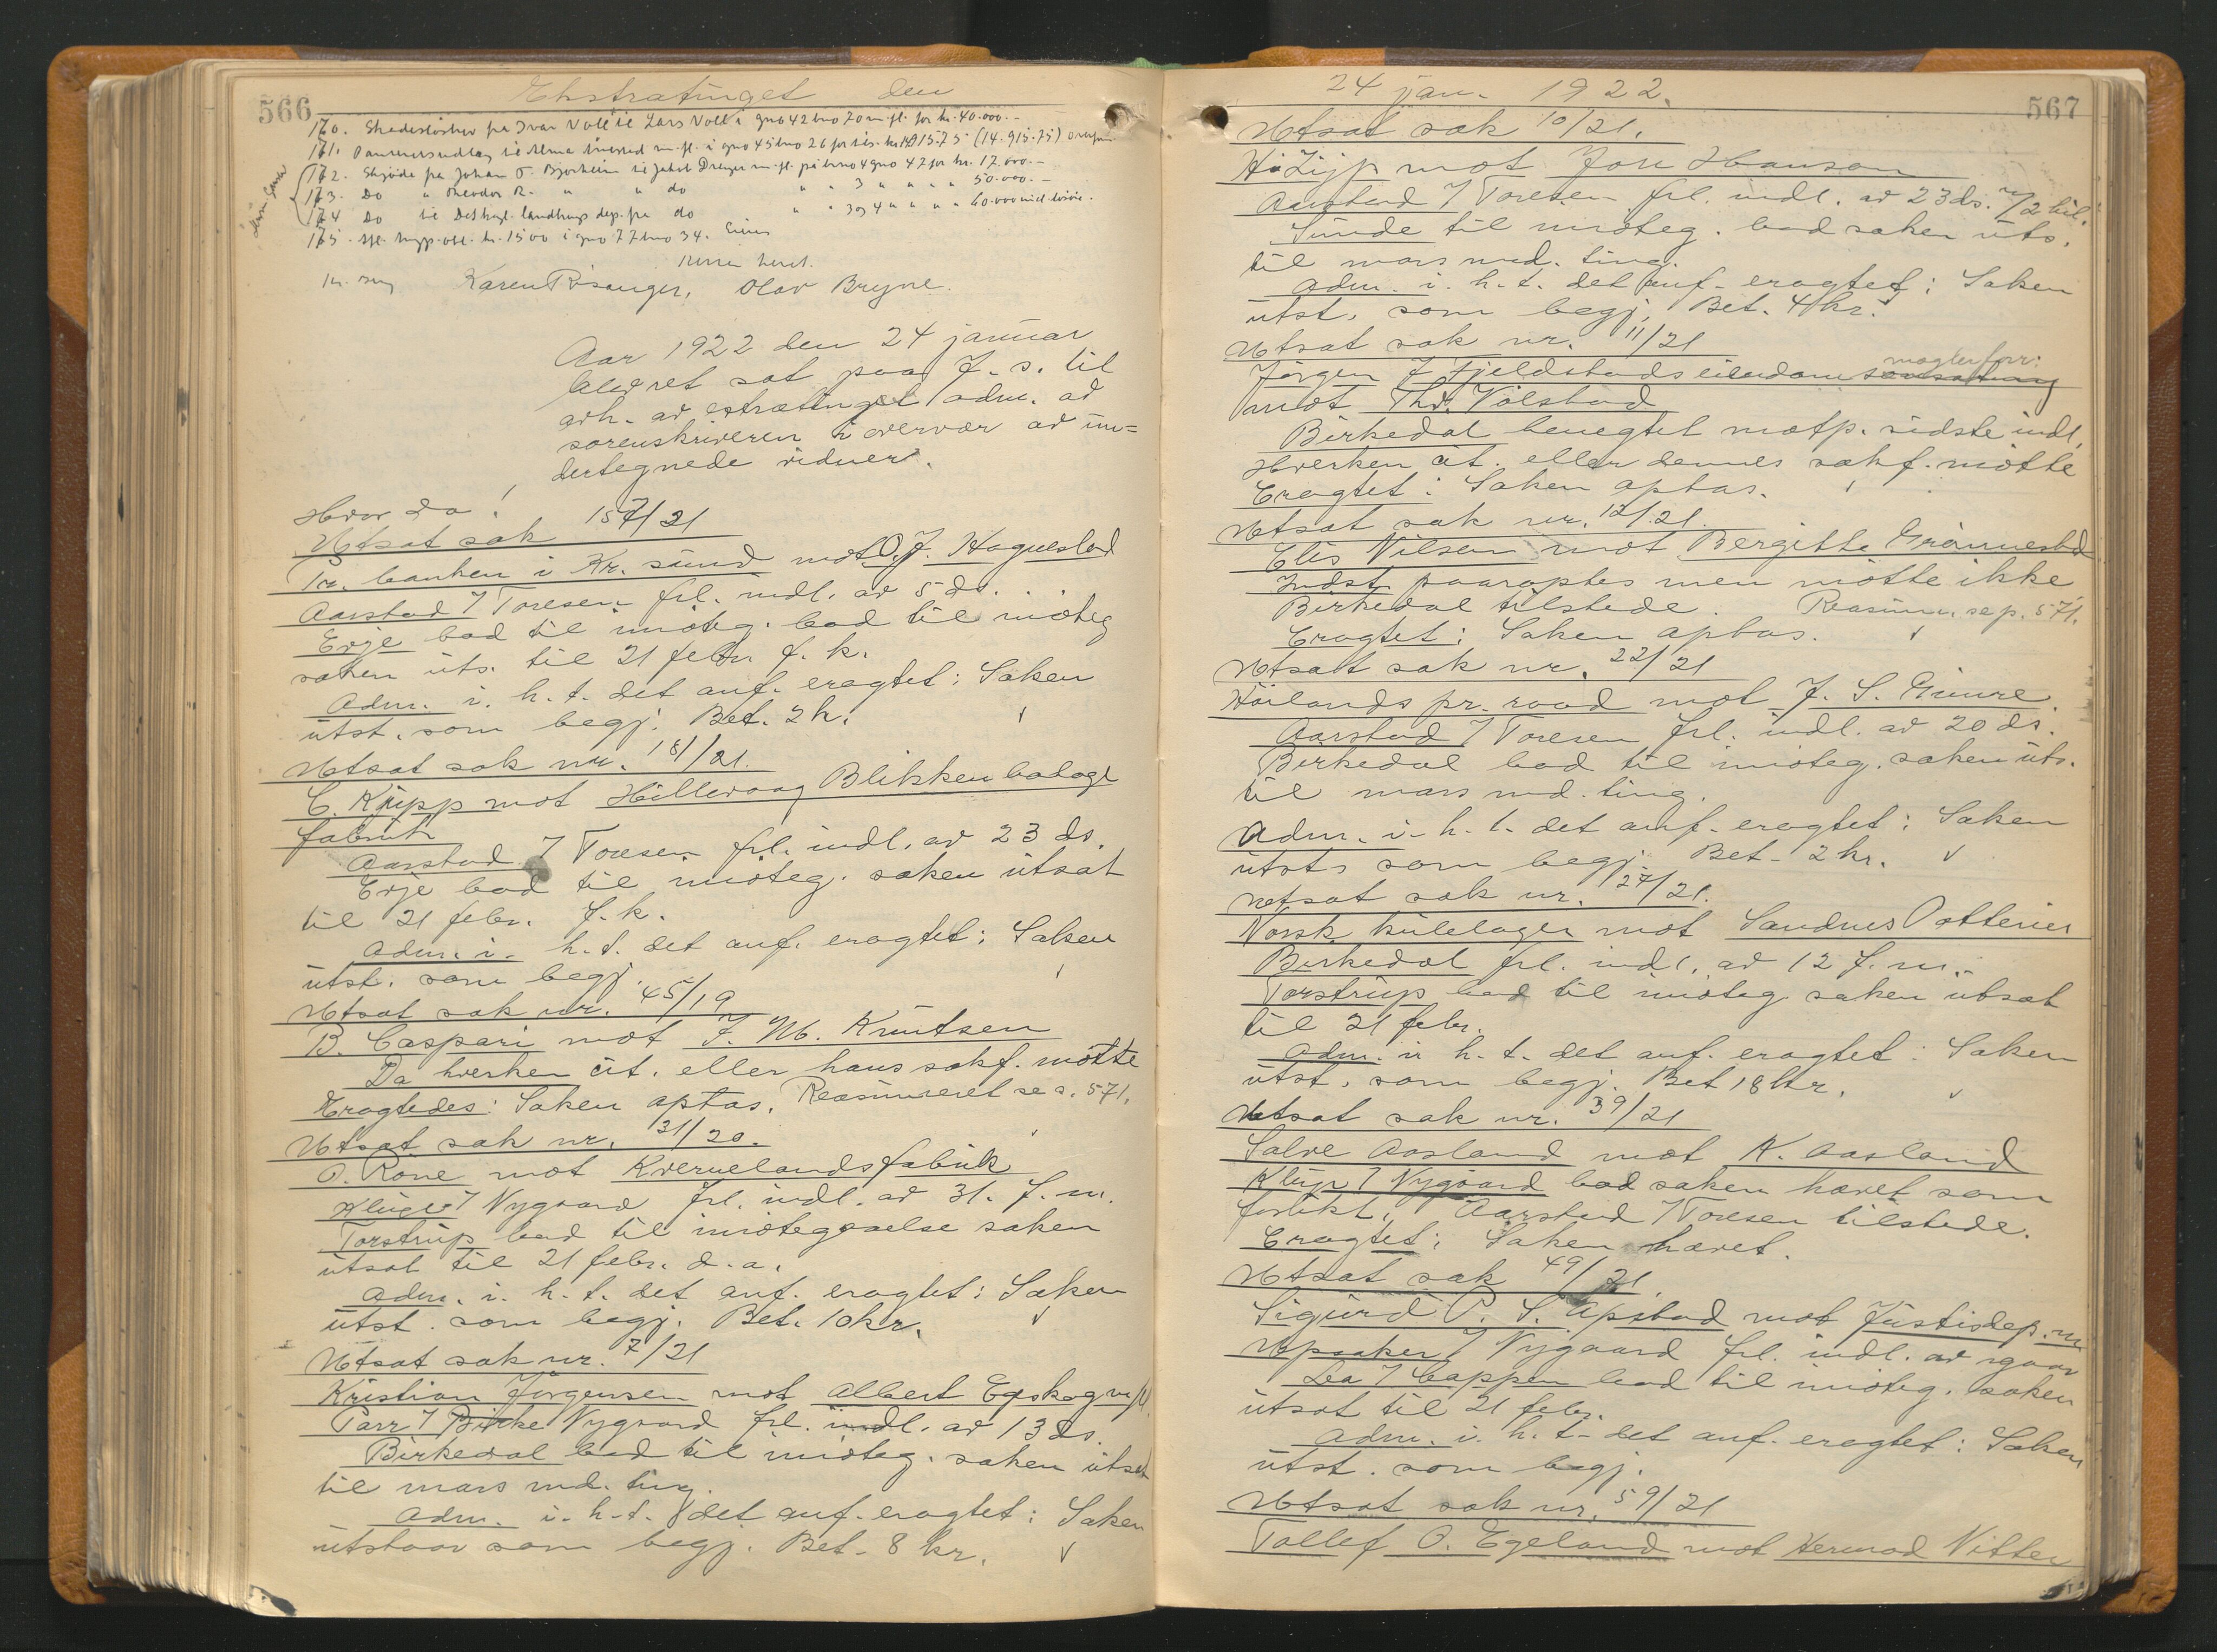 566
Ekstratinget den
170. Skadesløsbrev fra Ivar Voll til Lars Voll i gno 42 bno 20 m.fl. for kr. 40.000.-
171. til m.fl. i gno 45 bno 26 for (14.915.75)
172. Skjøde fra Johan T. Bjorheim til Jakob Dreyer m.fl. på bno 4 gno 47 for kr. 17.000.-
173. Do " Theodor R. " " do " " 3 " " " " 50.000.-
174 Do til Det kgl. landbruks dep. fra do " " 3 og 4 " " " " 60.000
175. hyp. obl. kr. 1500 i gno 77 bno 34.
Retten hevet.
Karen Risanger, Olav Bryne.
Aar 1922 den 24 januar
blev ret sat paa J. s. til
avh. av estratinget adm. av
sorenskriveren i overvær av un=
dertegnede vidner.
Hvor da!
Utsat sak 157/21
Pr. banken i Kr. sund mot O. J. Hognestad
Aarstad / Toresen frl. indl. av 5 ds.
Erje bad til imøteg. bad til imøteg
saken uts. til 21 febr. f. k.
Adm. i. h. t. det anf. eragtet: Saken
utst. som begj. Bet. 2 k.
Utsat sak nr. 181/21.
C. Kripp mot Hillevaag Blikkenbalage
fabrik
Aarstad / Toresen frl. indl. av 23 ds.
Erje bad til imøteg. saken utsat
til 21 febr. f. k.
Adm. i. h. t. det anf. eragtet: Saken
utst. som begj.
Utsat sak nr. 45/19
B. Caspari mot J. M. Knutsen
Da hverken cit. eller hans sakf. møtte
Eragtedes: Saken optas. Reasumeret se s. 571.
Utsat sak nr. 31/20.
O. Rone mot Kvernelands fabrik
Kluge / Nygaard frl. indl. av 31. f. m.
Torstrup bad til imøtegaaelse saken
utsat til 21 febr. d. a.
Adm. i. h. t. det anf. eragtet: Saken
utst. som begj. Bet. 10 kr.
Utsat sak nr. 7/21
Kristian Jørgensen mot Albert Egeskog m/fl.
Tarr / Birke Nygaard frl. indl. av 13 ds.
Birkedal bad til imøteg. saken utsat
til mars md. ting.
Adm. i. h. t. det anf. eragtet: Saken
utstaar som begj. Bet. 8 kr.
24 jan. 1922.
567
Utsat sak 10/21.
H. Zijp mot Jon Hanson
Aarstad / Toresen frl. indl. av 23 ds. 7/2 bil.
Sunde til imøteg. bad saken uts.
til mars md. ting.
Adm. i. h. t. det anf. eragtet: Saken
utst. som begj. Bet. 4 kr.
Utsat sak nr. 11/21
Jørgen J Fjeldstads eiendoms mæglerforr:
mot Thv. Vølstad
Birkedal benegtet motp. sidste indl.
Hverken cit. eller dennes sakf. møtte
Eragtet: Saken optas.
Utsat sak nr. 12/21.
Elis Nilsen mot Bergitte Grønnestad
Indst. paaroptes men møtte ikke
Birkedal tilstede. Reasum. se p. 571.
Eragtet: Saken optas.
Utsatt sak nr. 22/21
Høilands pr. raad mot J. S. Grimre.
Aarstad / Toresen frl. indl. av 20 ds.
Birkedal bad til imøteg. saken uts.
til mars md. ting.
Adm. i. h. t. det anf. eragtet: Saken
utsts som begj. Bet. 2 kr.
Utsat sak nr. 27/21.
Norsk kulelager mot Sandnes Potteries
Birkedal frl. indl. av 12 f. m.
Torstrup bad til imøteg saken utsat
til 21 febr.
Adm. i h. t. det anf. eragtet: Saken
utst. som begj. Bet 18 kr.
Utsat sak nr. 39/21
Salve Aasland mot K. Aasland
Kluge / Nygaard bad saken hævet som
forlikt. Aarstad / Toresen tilstede.
Eragtet: Saken hævet.
Utsat sak 49/21
Sigurd P. S. Opstad mot Justisdep. m
Opsaker / Nygaard frl. indl. av igaar
Lea / Cappen bad til imøteg. saken
utsat til 21 febr.
Adm. i. h. t. det anf. eragtet: Saken
utst. som begj.
Utsat sak nr. 59/21
Tollef O. Egeland mot Hermod Nitter